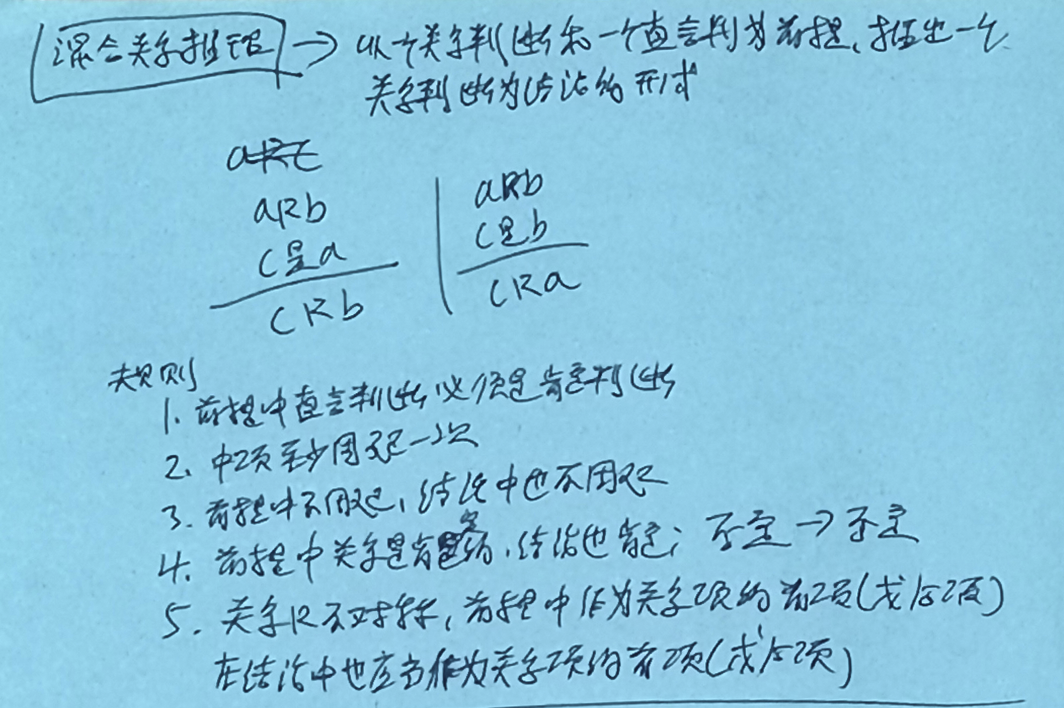 混合关系推理 → 以一个关系判断和一个直言判为前提,推出一个
关系判断为结论的形式
aRc
aRb
c是a
cRb
aRb
c是b
cRa
规则
1. 前提中直言判断必须是肯定判断
2. 中项至少周延一次
3. 前提中不周延,结论中也不周延
4. 前提中关系是肯定的,结论也肯定;否定→否定
5. 关系R不对称,前提中作为关系项的前项(或后项)
在结论中也应当作为关系项的前项(或后项)